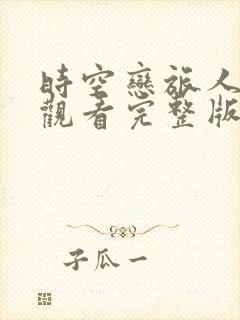 時空戀旅人
觀看完整版
子瓜一